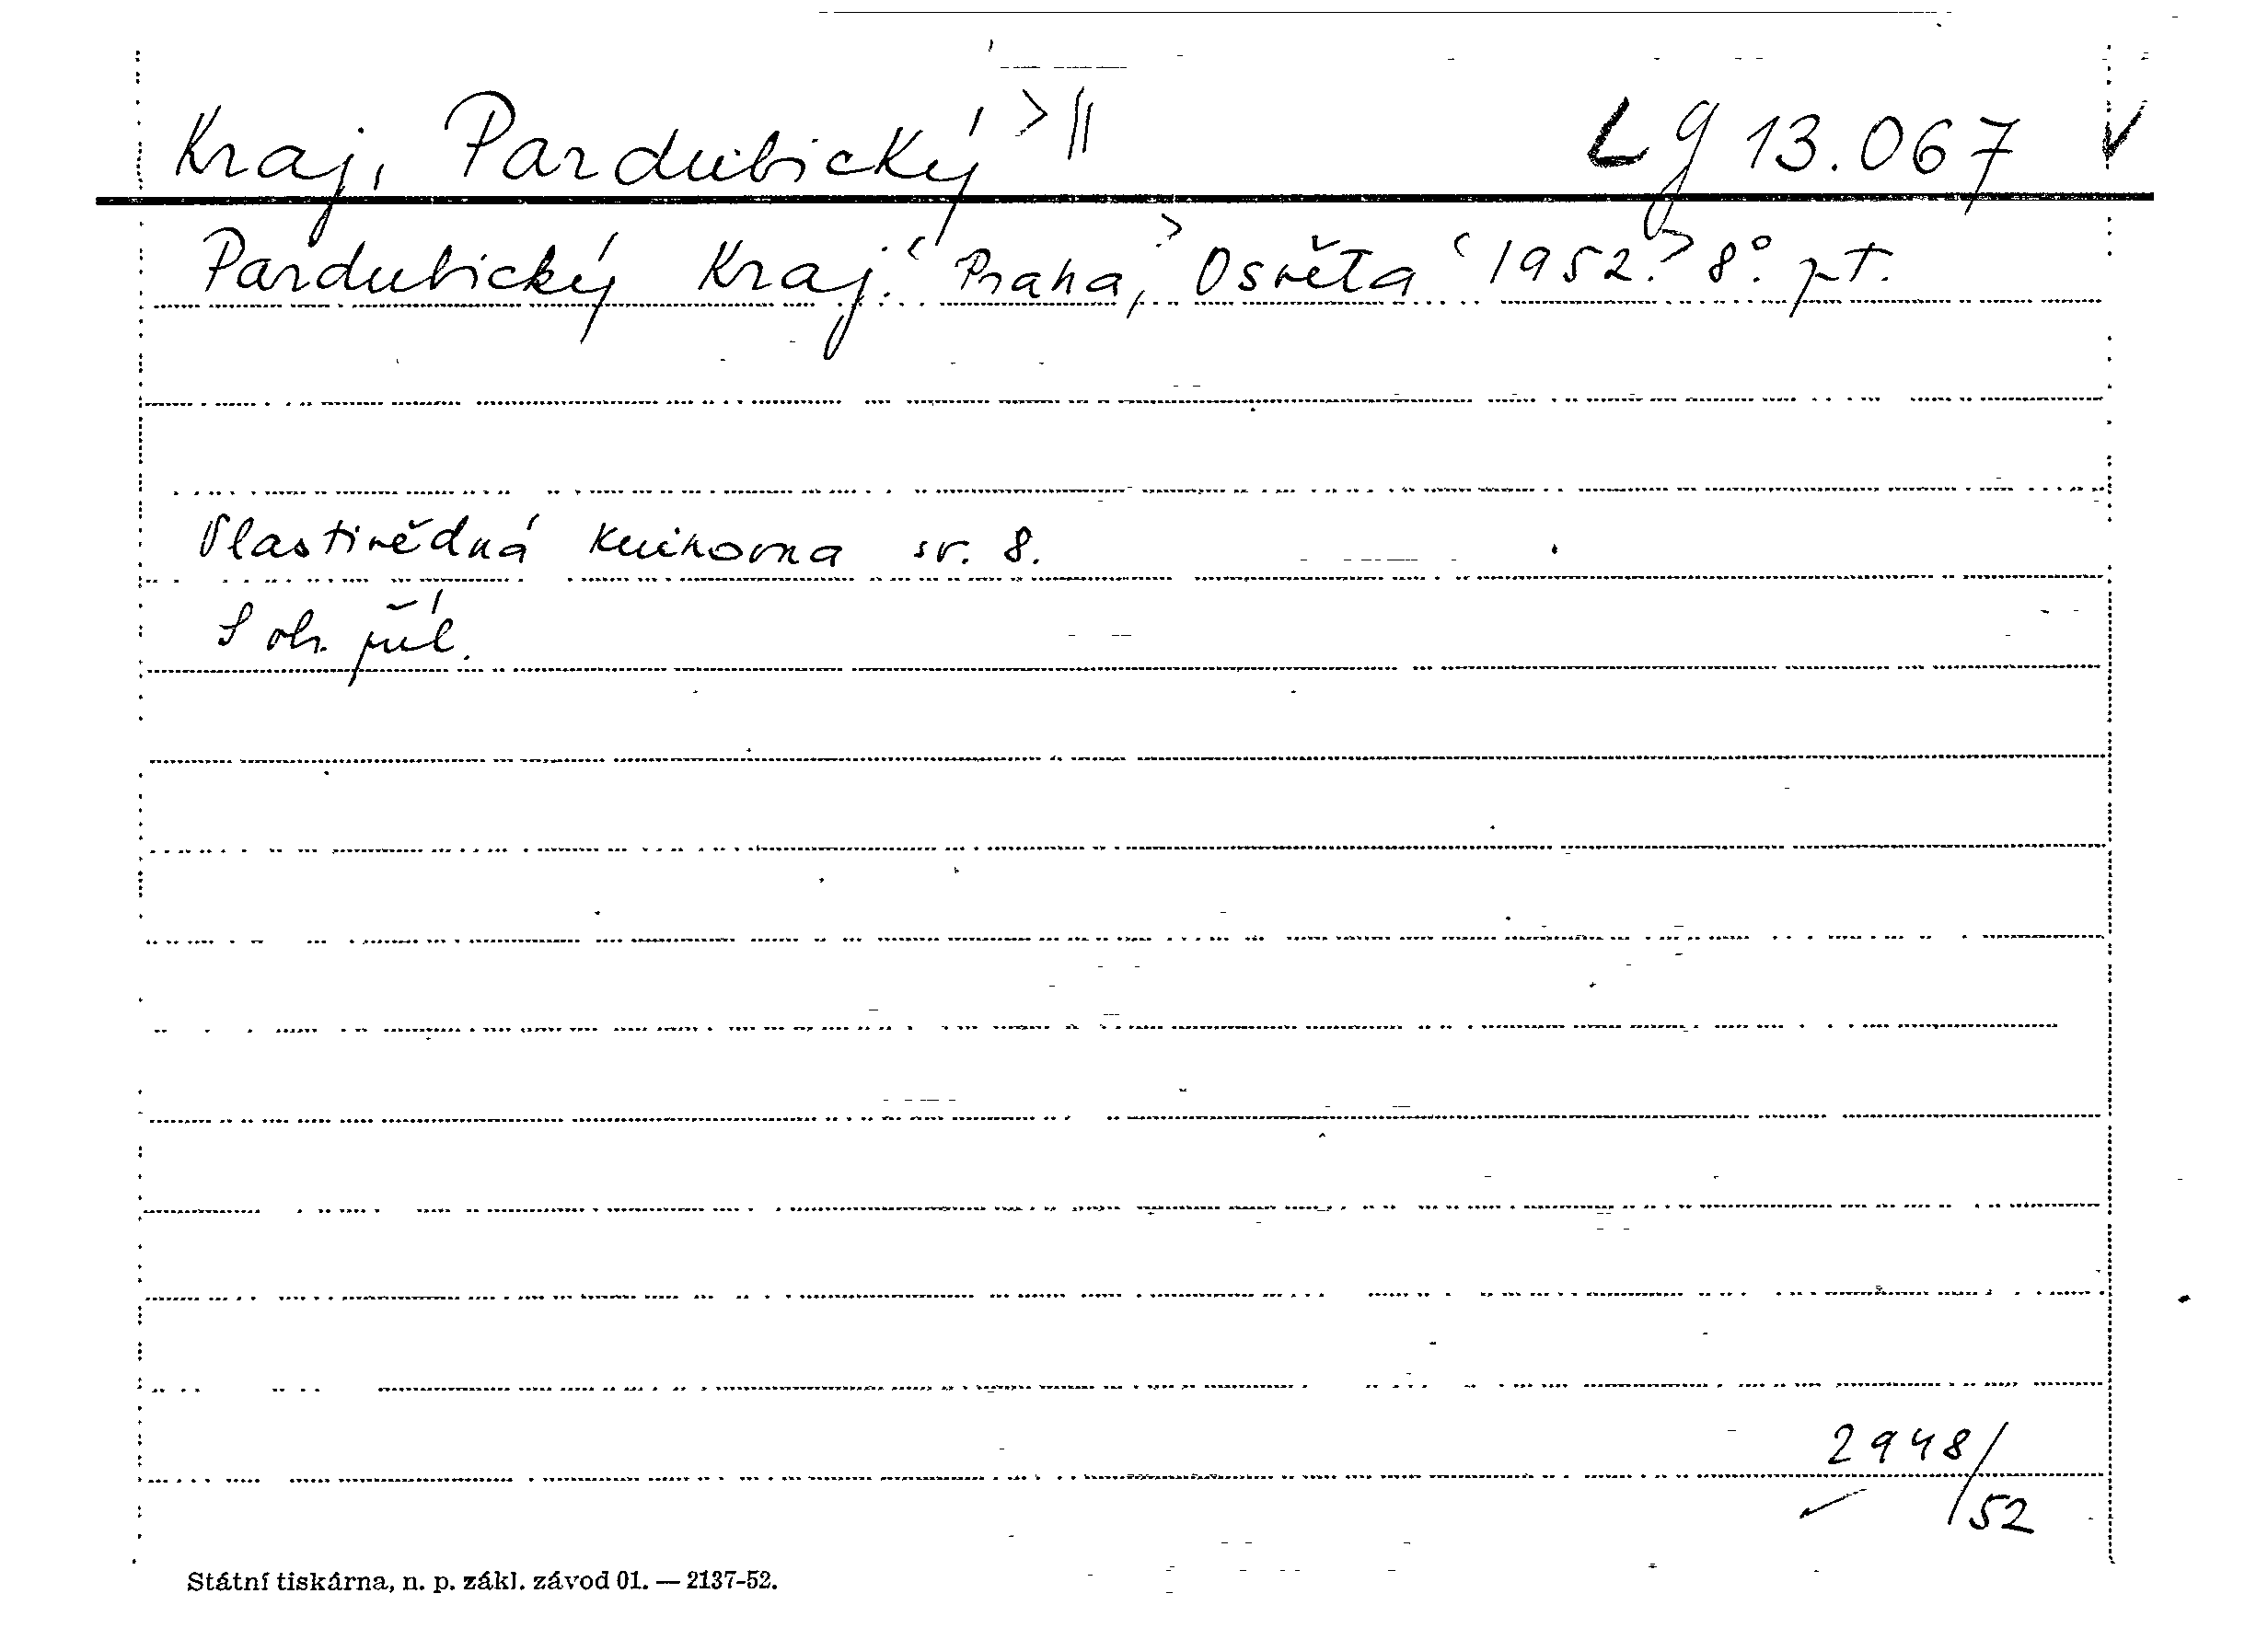 Kraj, Pardubický > || Lg 13.067 V
Pardubický Kraj. Praha, Osvěta 1952. 8°. pt.
Vlastivědná knihovna sv. 8.
S ob. příl.
2948/
52
Státní tiskárna, n. p. zákl. závod 01. — 2137-52.